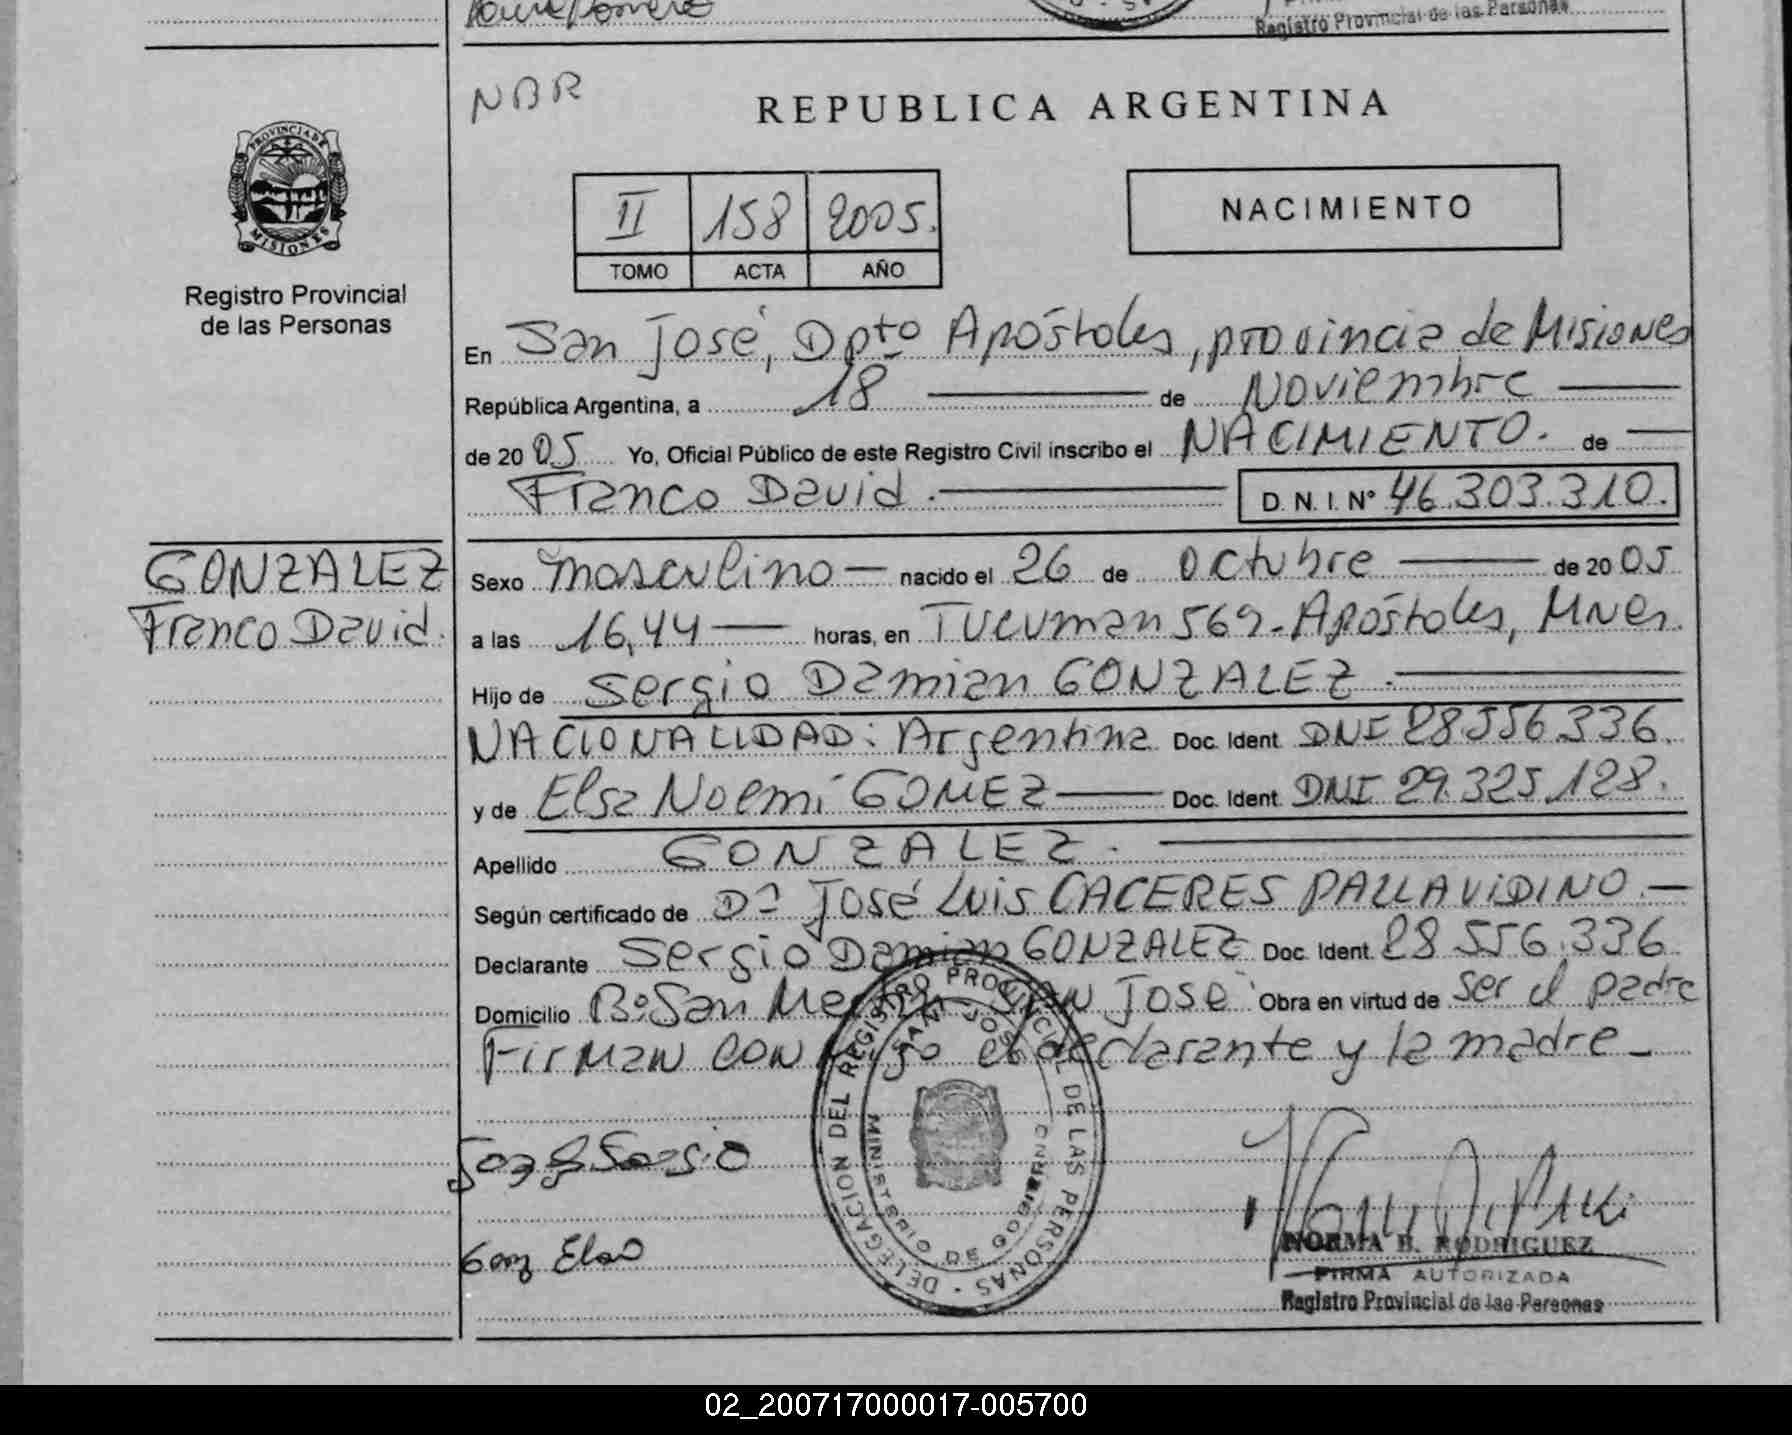 Registro Provincial de las Personas
NBR
REPUBLICA ARGENTINA
PROVINCIA DE
MISIONES
Registro Provincial
de las Personas
II 158 2005.
TOMO ACTA AÑO
NACIMIENTO
En San José, Dpto Apóstoles, provincia de Misiones
República Argentina, a 18 de Noviembre
de 20 05 Yo, Oficial Público de este Registro Civil inscribo el NACIMIENTO. de
Franco David. D. N. I. Nº 46.303.310.
GONZALEZ
Franco David.
Sexo masculino nacido el 26 de octubre de 20 05
a las 16,44 horas, en Tucuman 569 - Apóstoles, Mnes.
Hijo de Sergio Damian GONZALEZ.
NACIONALIDAD: Argentina Doc. Ident. DNI 28.556.336.
y de Elsa Noemí GOMEZ Doc. Ident. DNI 29.325.128.
Apellido GONZALEZ.
Según certificado de Dr José Luis CACERES PALLAVIDINO.
Declarante Sergio Damian GONZALEZ Doc. Ident. 28.556.336
Domicilio Bº San Martin San José Obra en virtud de ser el padre
Firman conmigo el declarante y la madre
DELEGACION DEL REGISTRO PROVINCIAL DE LAS PERSONAS
SAN JOSE
MINISTERIO DE GOBIERNO
Sergio
Elsa
NORMA B. RODRIGUEZ
FIRMA AUTORIZADA
Registro Provincial de las Personas
02_200717000017-005700